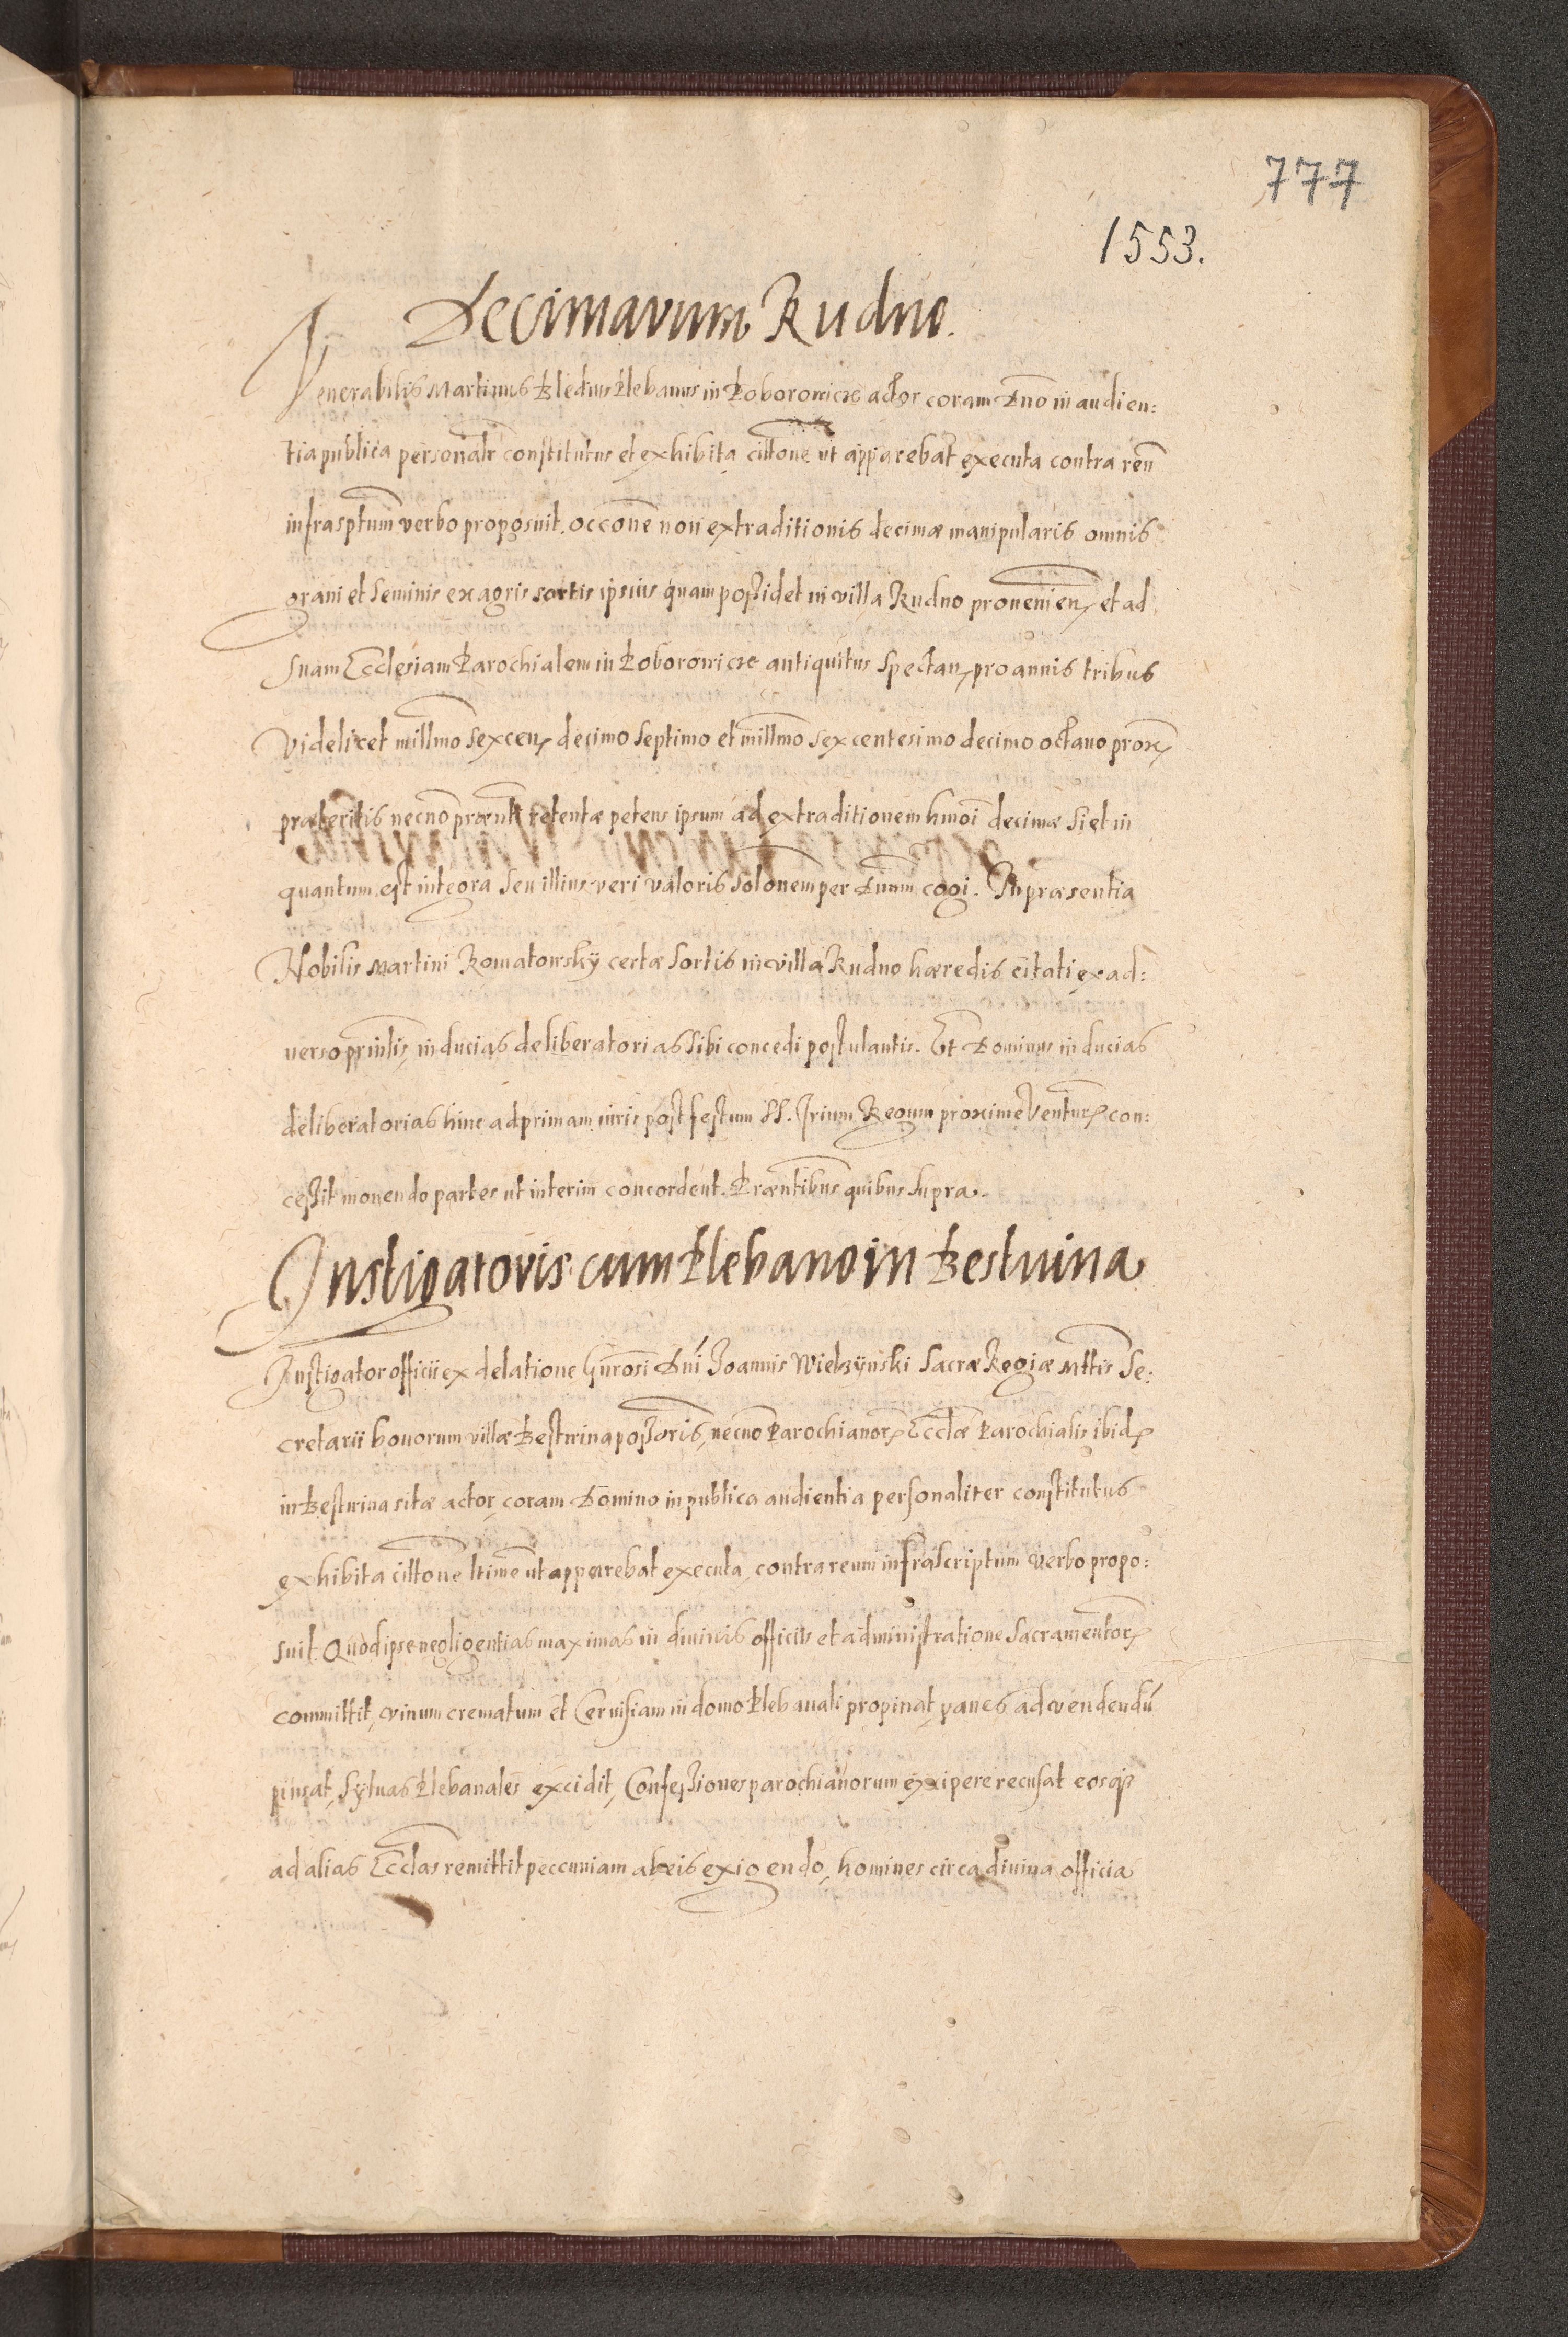 777
1553.
Decimarum Rudno.
Venerabilis Martinus Bledus Plebanus in Poborowice actor coram Dno in audien:
tia publica personalr constitutus et exhibita citone ut apparebat executa contra reu
infrasptum verbo proposuit. occone non extraditionis decimæ manipularis omnis
grani et seminis ex agris sortis ipsius quam possidet in villa Rudno provenien. et ad
suam Ecclesiam Parochialem in Poborowice antiquitus spectan. pro annis tribus
videlicet millmo sexcen. decimo septimo et millmo sexcentesimo decimo octavo prox.
præteritis necno prænti retentæ petens ipsum ad extraditionem hmoi decimæ si et in
quantum est integra seu illius veri valoris solonem per Dnum cogi. In præsentia
Nobilis Martini Komatowsky certæ sortis in villa Rudno hæredis citati ex ad:
verso prinlis inducias deliberatorias sibi concedi postulantis. Et Dominus inducias
deliberatorias hinc ad primam iuris post festum SS. Trium Regum proxime ventur. con:
cessit monendo partes ut interim concordent. Præntibus quibus supra.
Instigatoris cum Plebano in Bestwina
Instigator officii ex delatione Gnrosi Dni Joannis Wiekzynski Sacræ Regiæ Mttis Se:
cretarii bonorum villæ Bestwina possoris, necno Parochianor. Ecclæ Parochialis ibid.
in Bestwina sitæ actor, coram Domino in publica audientia personaliter constitutus
exhibita cittone ltime ut apparebat executa, contra reum infrascriptum verbo propo:
suit. Quod ipse negligentias maximas in divinis officiis et administratione Sacramentor.
committit, vinum crematum et Cervisiam in domo Plebanali propinat, panes ad vendendu
pinsat, sylvas Plebanales excidit, Confessiones parochianorum excipere recusat eosq3
ad alias Ecclas remittit peccuniam ab eis exigendo, homines circa divina officia